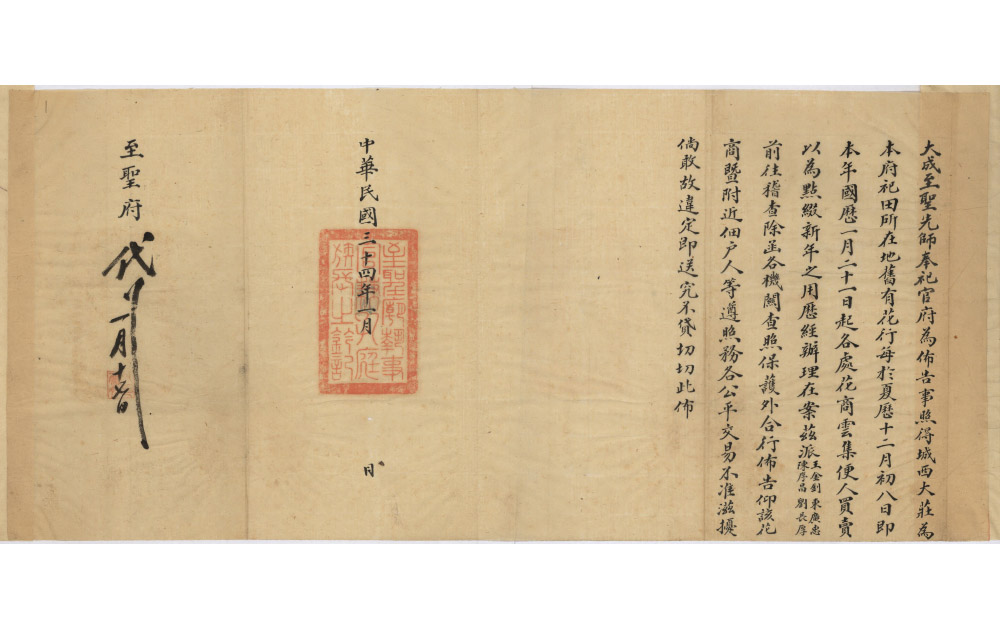 大成至聖先師奉祀官府為佈告事照得城西大莊為
本府祀田所在地舊有花行每於夏歷十二月初八日即
本年國歷一月二十一日起各處花商雲集便人買賣
以為點綴新年之用歷經辦理在案茲派王金釗 東廣忠 陳序昌 劉長厚
前往稽查除函各機關查照保護外合行佈告仰該花
商暨附近佃戶人等遵照務各公平交易不准滋擾
倘敢故違定即送究不貸切切此佈
中華民國三十四年一月
日
至聖府
代
一月十
日